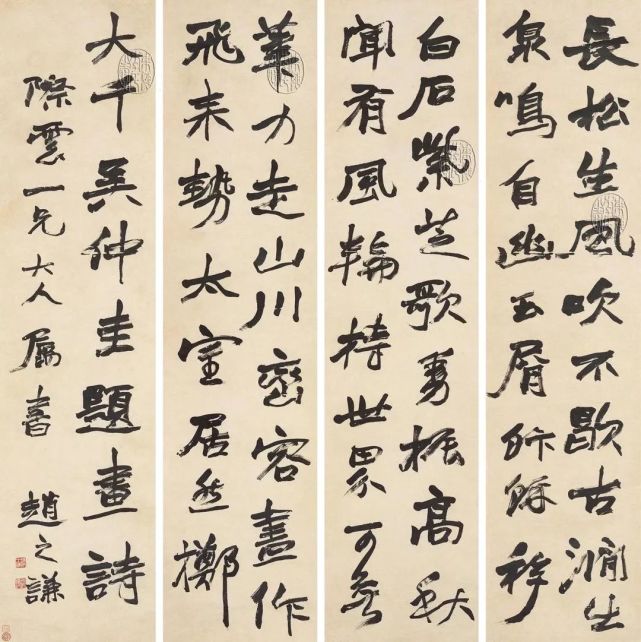 長松生風吹不歇古澗出
泉鳴自幽玉屑餘
白石紫芝歌振高秋
聞有風輪持世界可無
筆力走山川巒容盡作
飛來勢太室居然擲
大千吳仲圭題畫詩
際雲一兄大人屬書 趙之謙